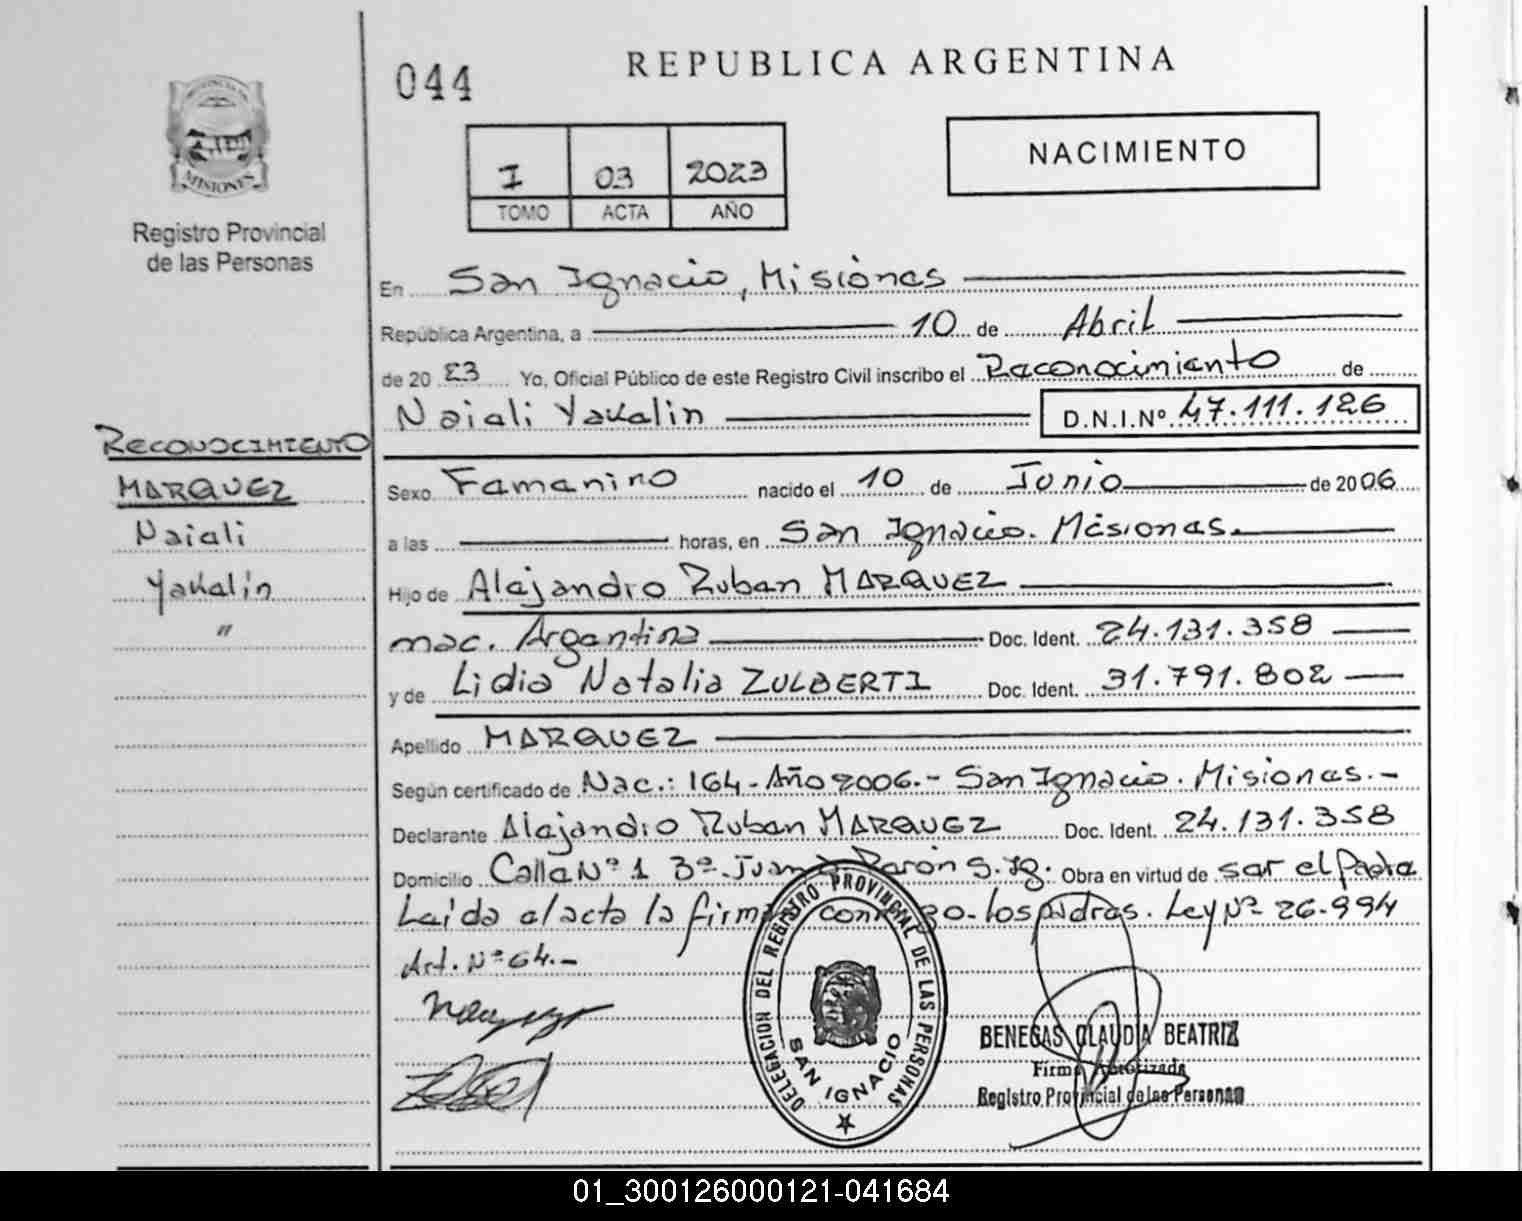 REPUBLICA ARGENTINA
044
NACIMIENTO
I 03 2023
TOMO ACTA AÑO
MISIONES
Registro Provincial
de las Personas
En San Ignacio, Misiones
República Argentina, a 10 de Abril
de 20 23 Yo, Oficial Público de este Registro Civil inscribo el Reconocimiento de
Naiali Yakelin D.N.I.Nº 47.111.126
RECONOCIMIENTO
MARQUEZ
Naiali
Yakelin
"
Sexo Femenino nacido el 10 de Junio de 2006
a las horas, en San Ignacio. Misiones.
Hijo de Alejandro Ruben MARQUEZ
nac. Argentina Doc. Ident. 24.131.358
y de Lidia Natalia ZULBERTI Doc. Ident. 31.791.802
Apellido MARQUEZ
Según certificado de Nac.: 164-Año 2006.- San Ignacio. Misiones.-
Declarante Alejandro Ruben MARQUEZ Doc. Ident. 24.131.358
Domicilio Calle Nº 1 Bº Juan Peron S. Ig. Obra en virtud de ser el Padre
Leida el acta la firma los padres. Ley Nº 26.994
Art. Nº 64.-
DELEGACION DEL REGISTRO PROVINCIAL DE LAS PERSONAS
SAN IGNACIO
BENEGAS CLAUDIA BEATRIZ
Firma Autorizada
Registro Provincial de las Personas
01_300126000121-041684